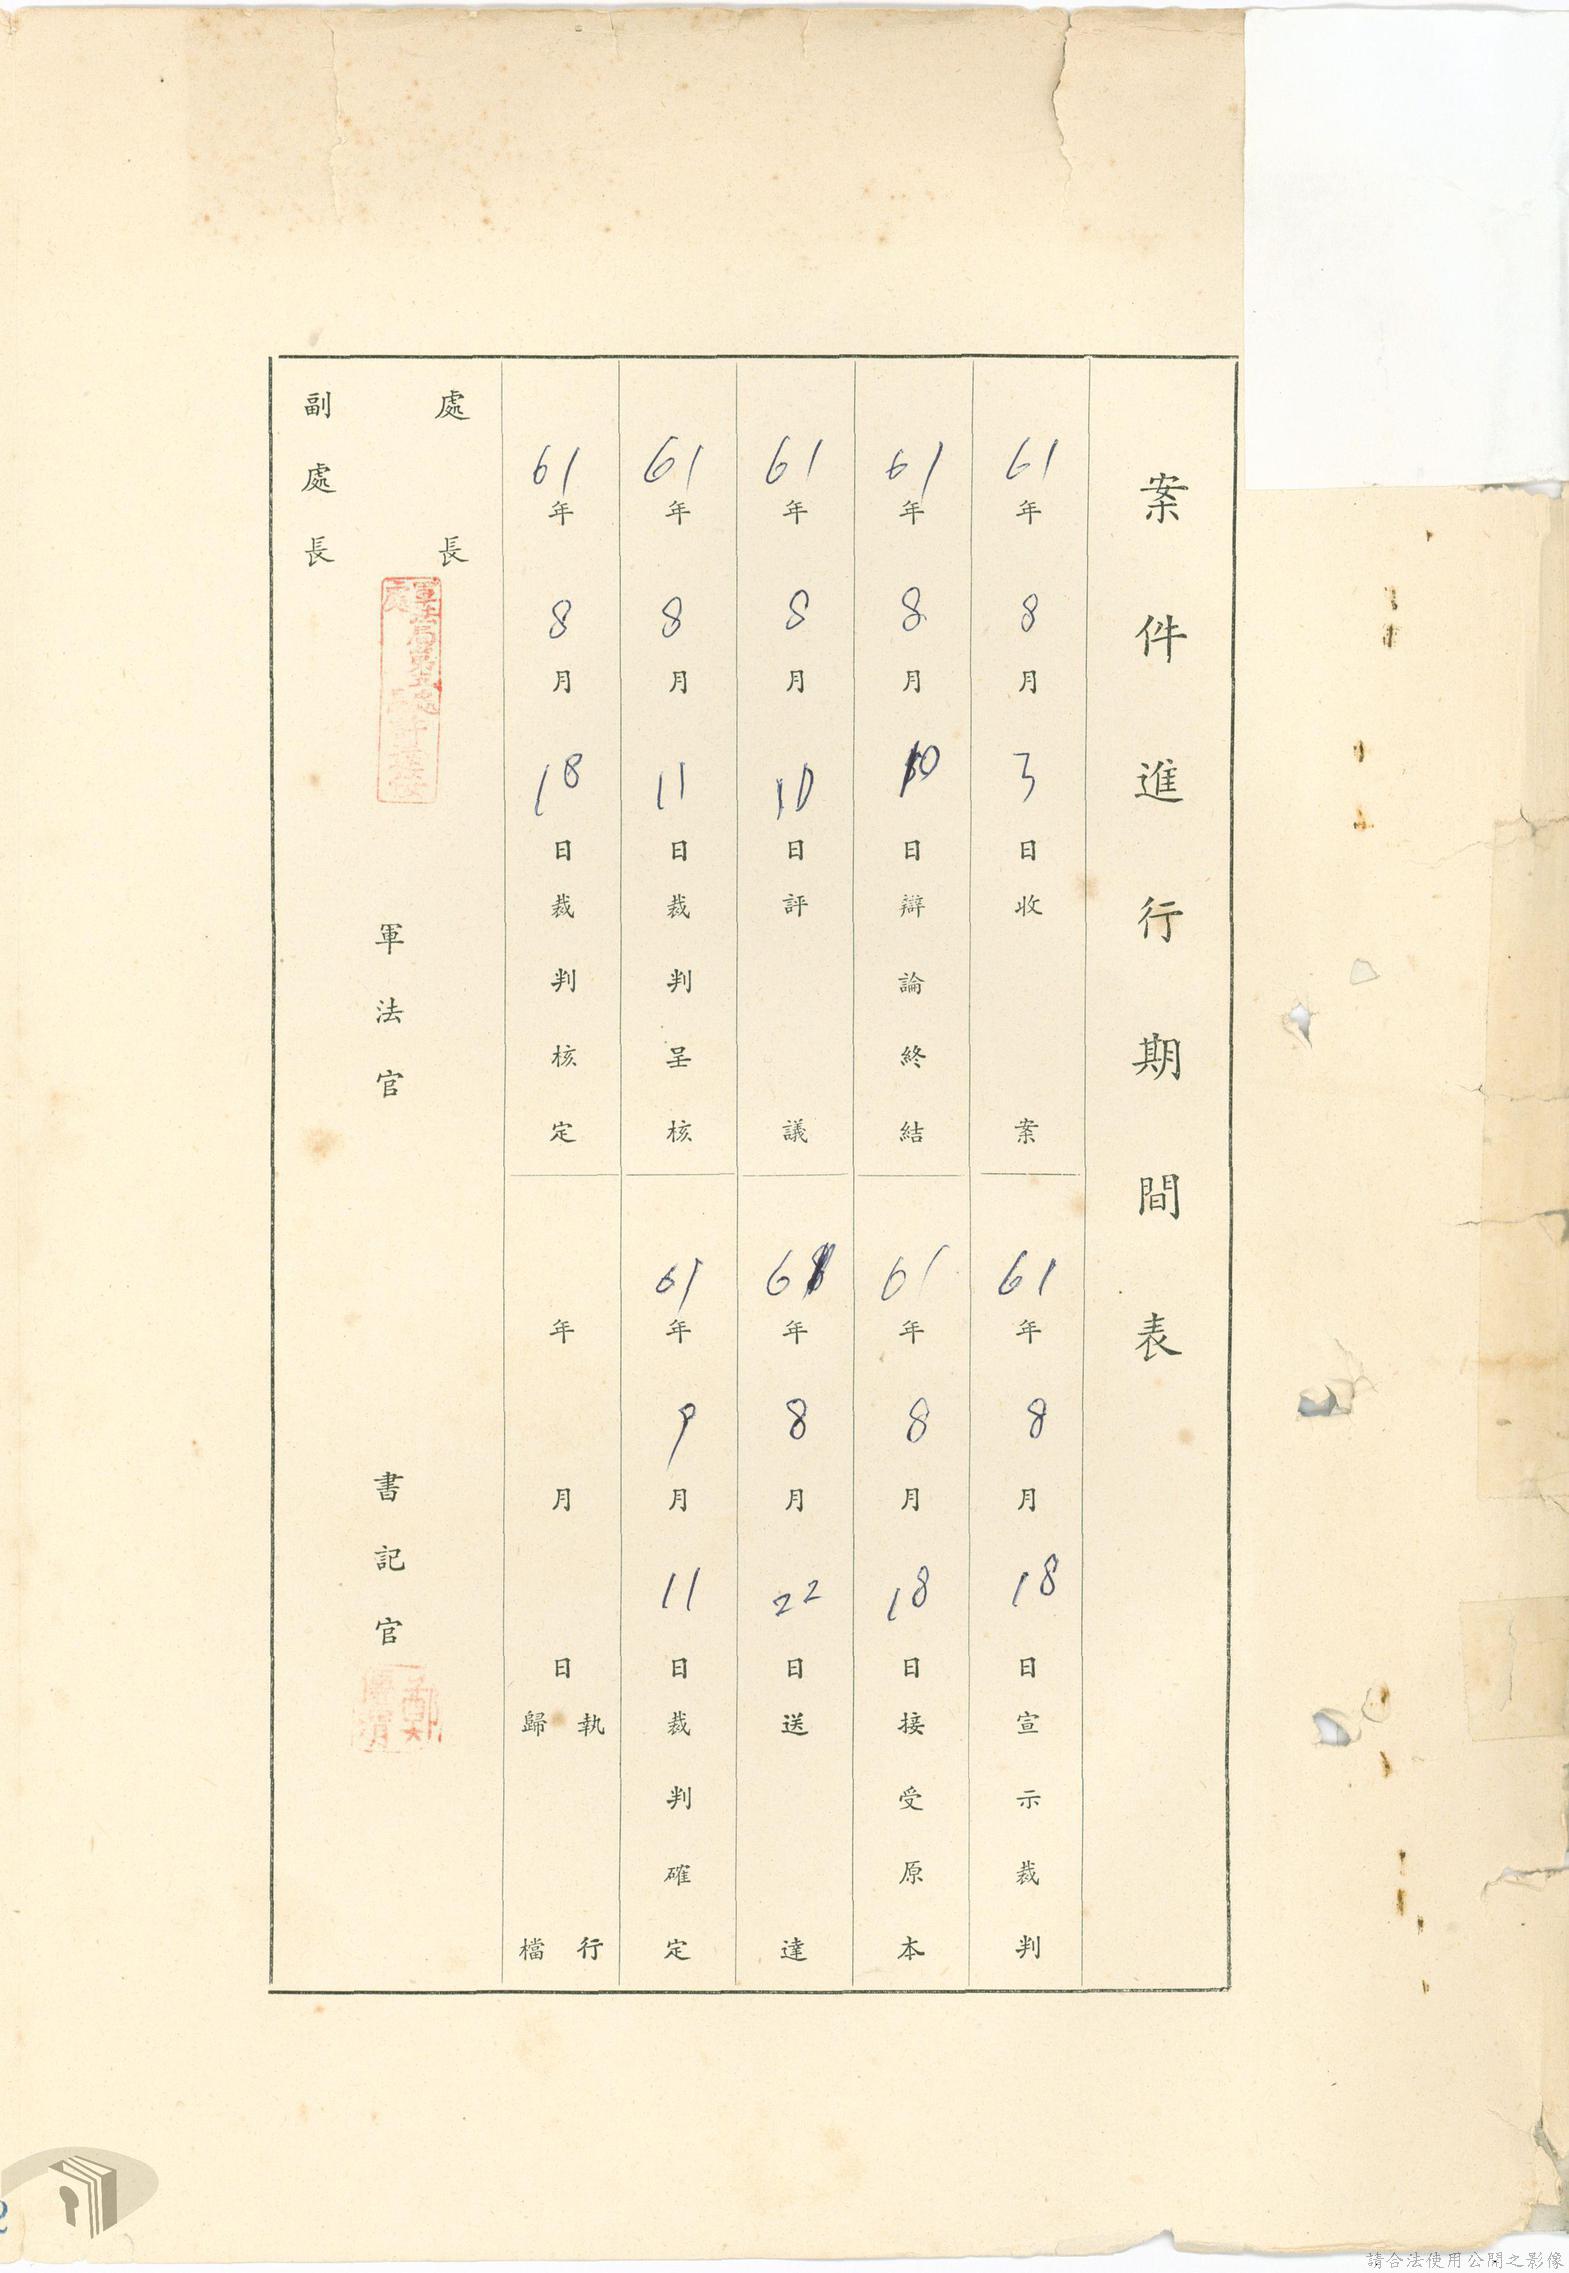 案件進行期間表
61年8月3日收案
61年8月10日辯論終結
61年8月11日評議
61年8月11日裁判呈核
61年8月18日裁判核定
61年8月18日宣示裁判
61年8月18日接受原本
61年8月22日送達
61年9月11日裁判確定
年月日執行歸檔
處長
副處長
軍法官
書記官
請合法使用公開之影像